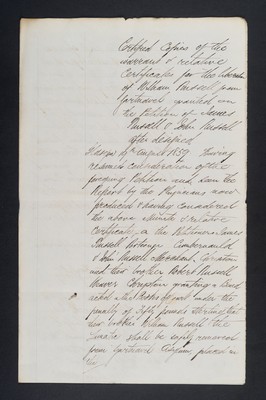 Certified Copies of the
warrant & relative
Certificates for the liberation
of William Russell from
Gartnavel granted on
the Petition of James
Russell & John Russell
after designed
Glasgow 4th August 1859. Having
resumed consideration of the
foregoing Petition and seen the
Report by the Physicians now
produced & having considered
the above Minute & relative
Certificate, on the Petitioners James
Russell Cumbernauld
& John Russell
and their brother Robert Russell
Weaver granting a Bond
in the Books of Court under the
penalty of Fifty pounds Sterling that
their brother William Russell the
Lunatic shall be safely removed
from Gartnavel Asylum placed in